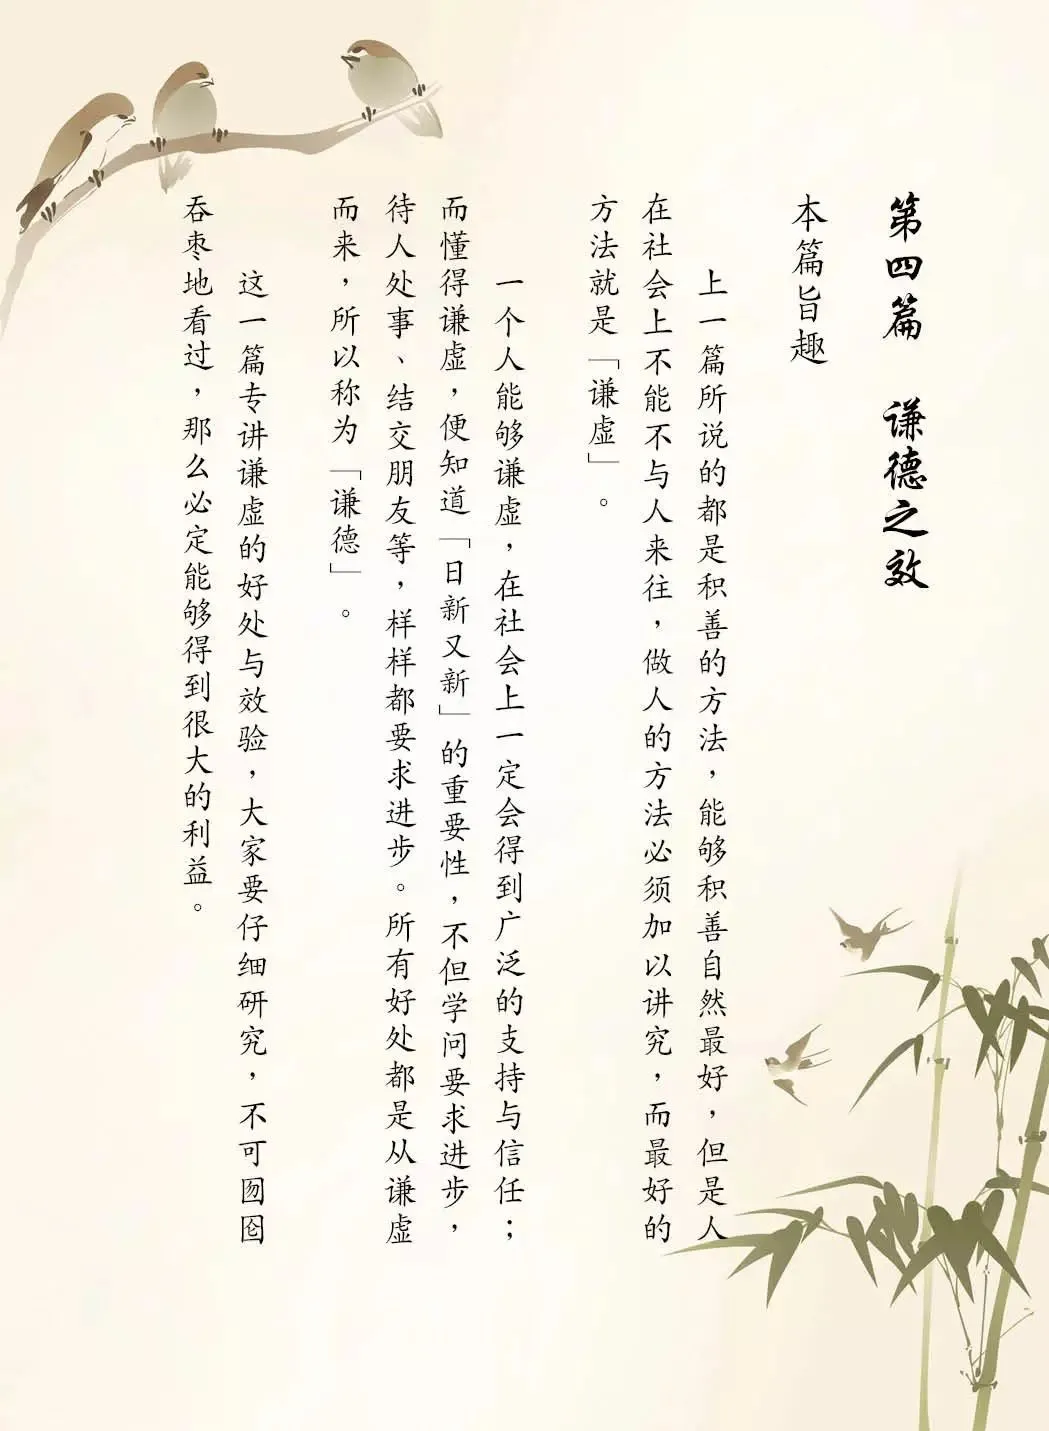 第四篇 谦德之效
本篇旨趣
上一篇所说的都是积善的方法，能够积善自然最好，但是人
在社会上不能不与人来往，做人的方法必须加以讲究，而最好的
方法就是「谦虚」。
一个人能够谦虚，在社会上一定会得到广泛的支持与信任；
而懂得谦虚，便知道「日新又新」的重要性，不但学问要求进步，
待人处事、结交朋友等，样样都要求进步。所有好处都是从谦虚
而来，所以称为「谦德」。
这一篇专讲谦虚的好处与效验，大家要仔细研究，不可囫囵
吞枣地看过，那么必定能够得到很大的利益。